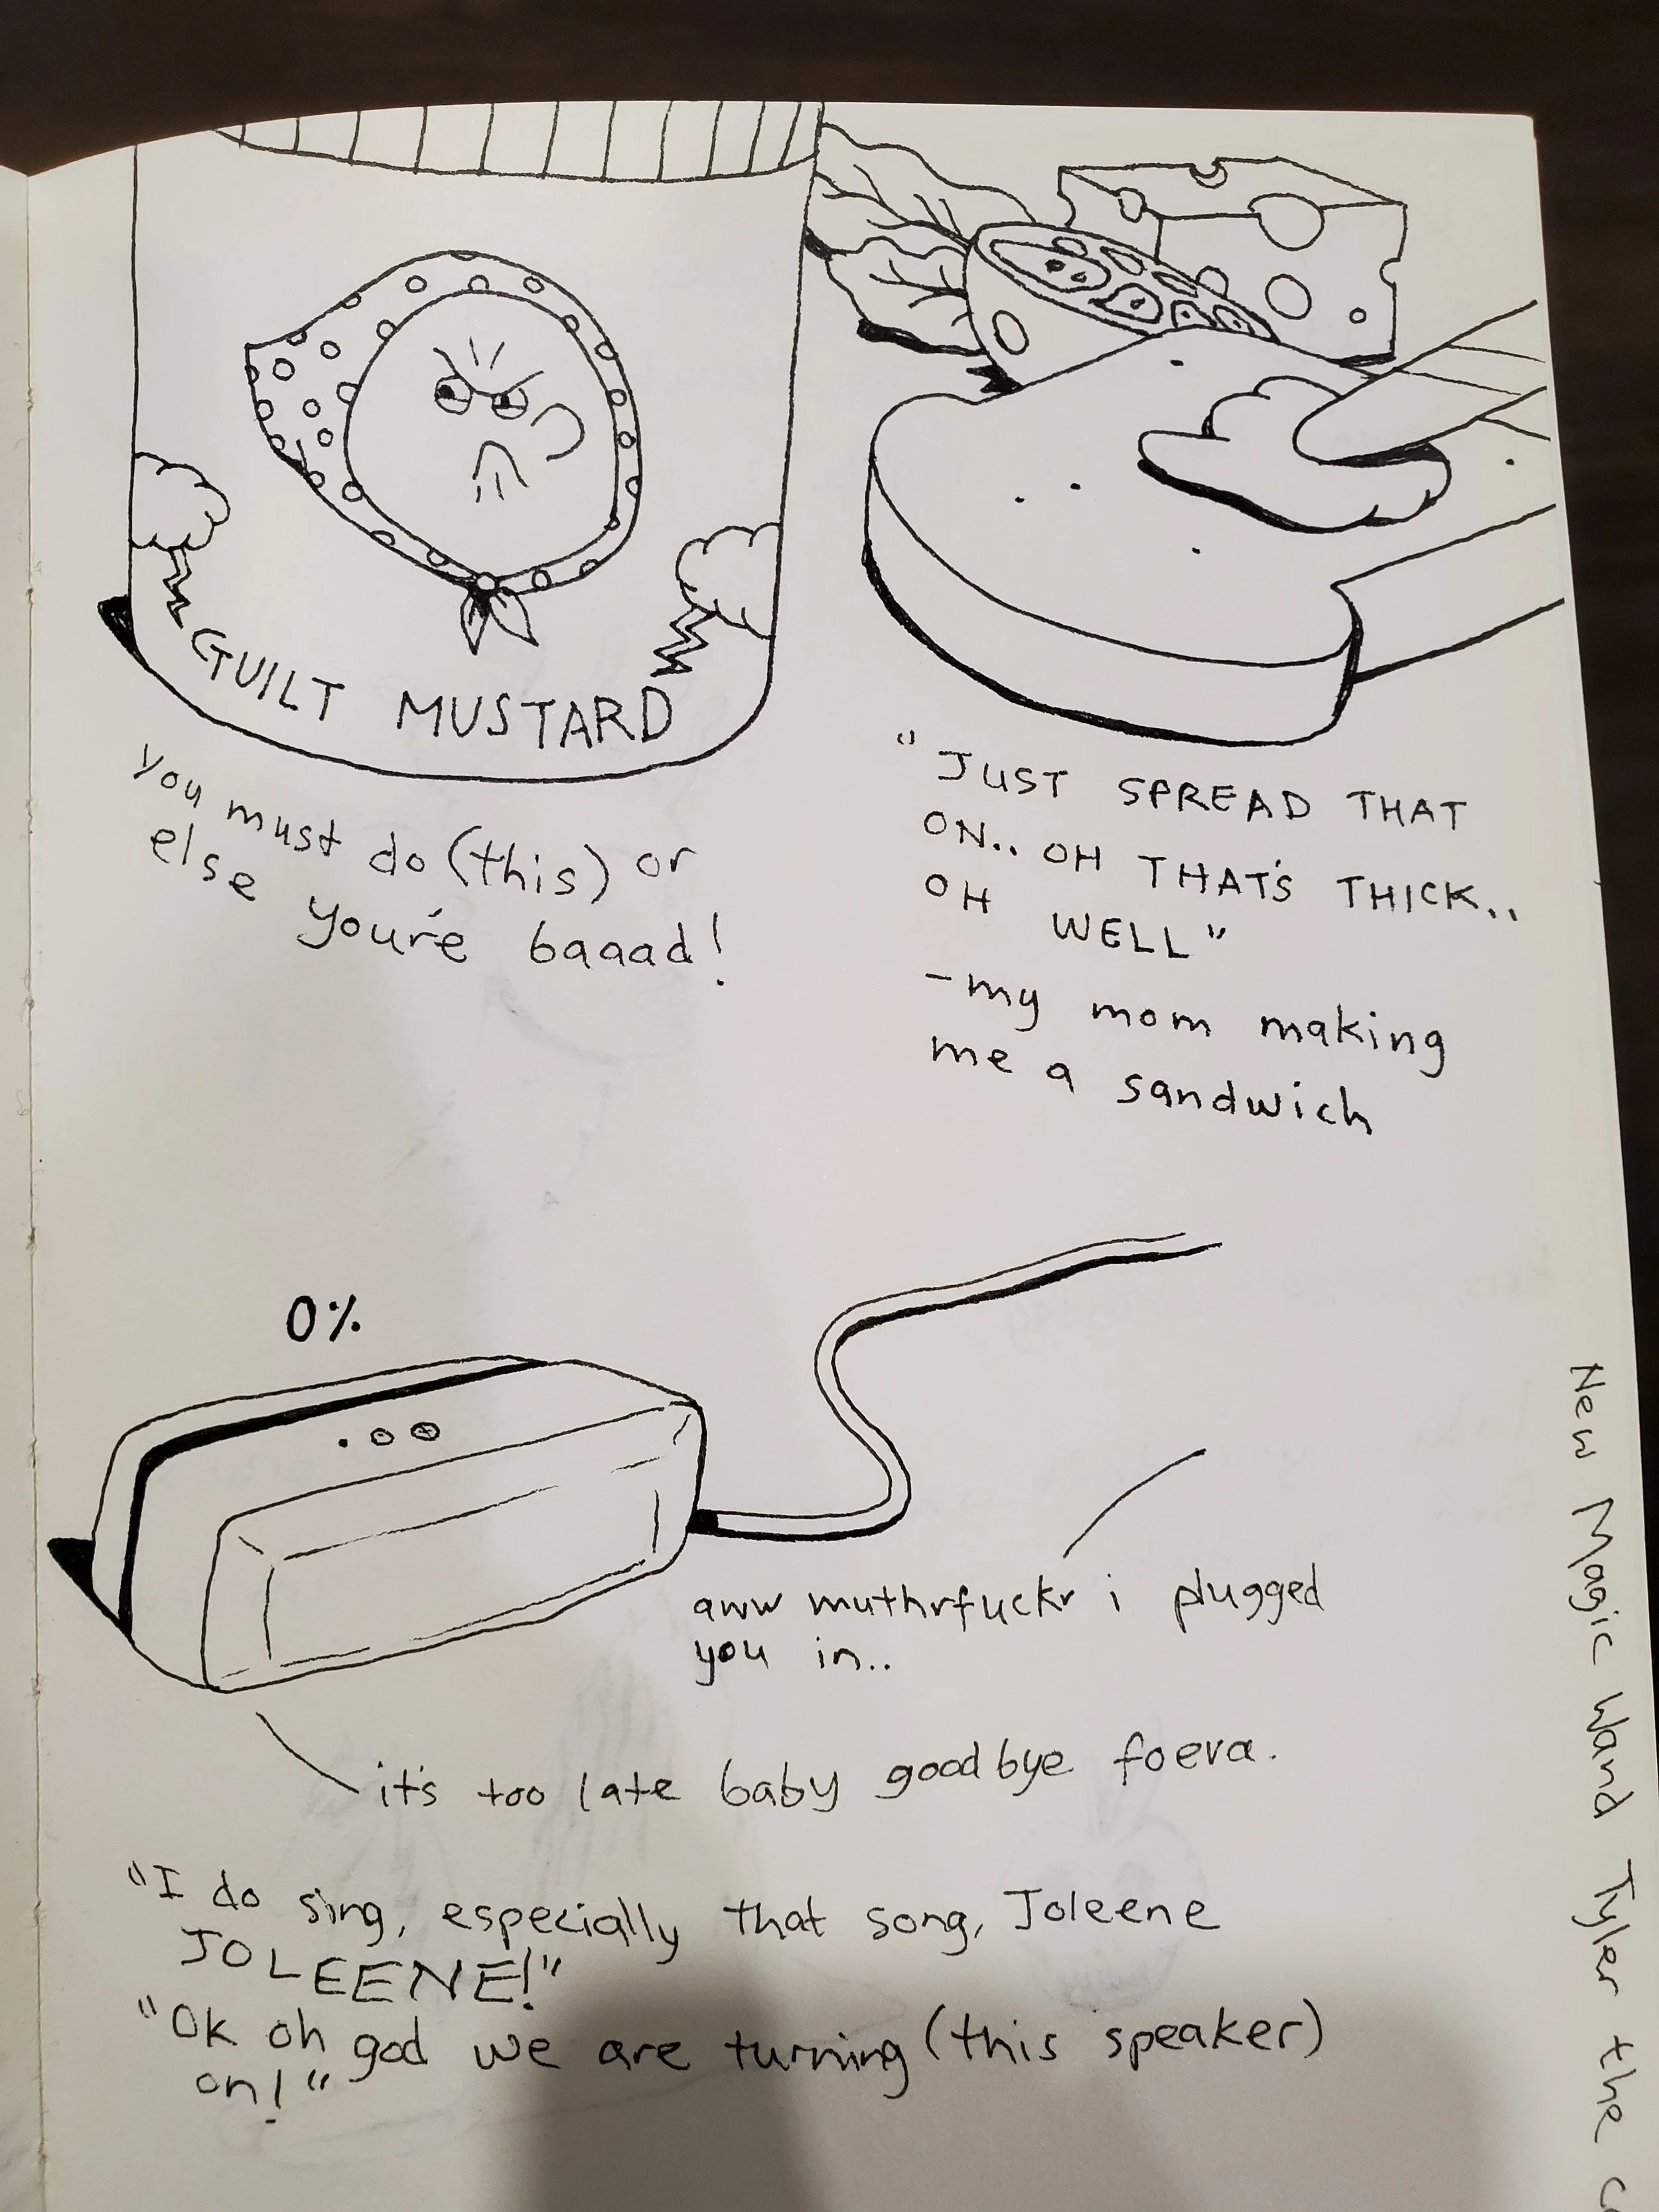 GUILT MUSTARD
You must do (this) or
else you're baaad!
"JUST SPREAD THAT
ON.. OH THAT'S THICK..
OH WELL"
-my mom making
me a sandwich
0%
aww muthrfuckr i plugged
you in..
it's too late baby goodbye foeva.
"I do sing, especially that song, Joleene
JOLEENE!"
"Ok oh god we are turning (this speaker)
on!"
New Magic Wand Tyler the